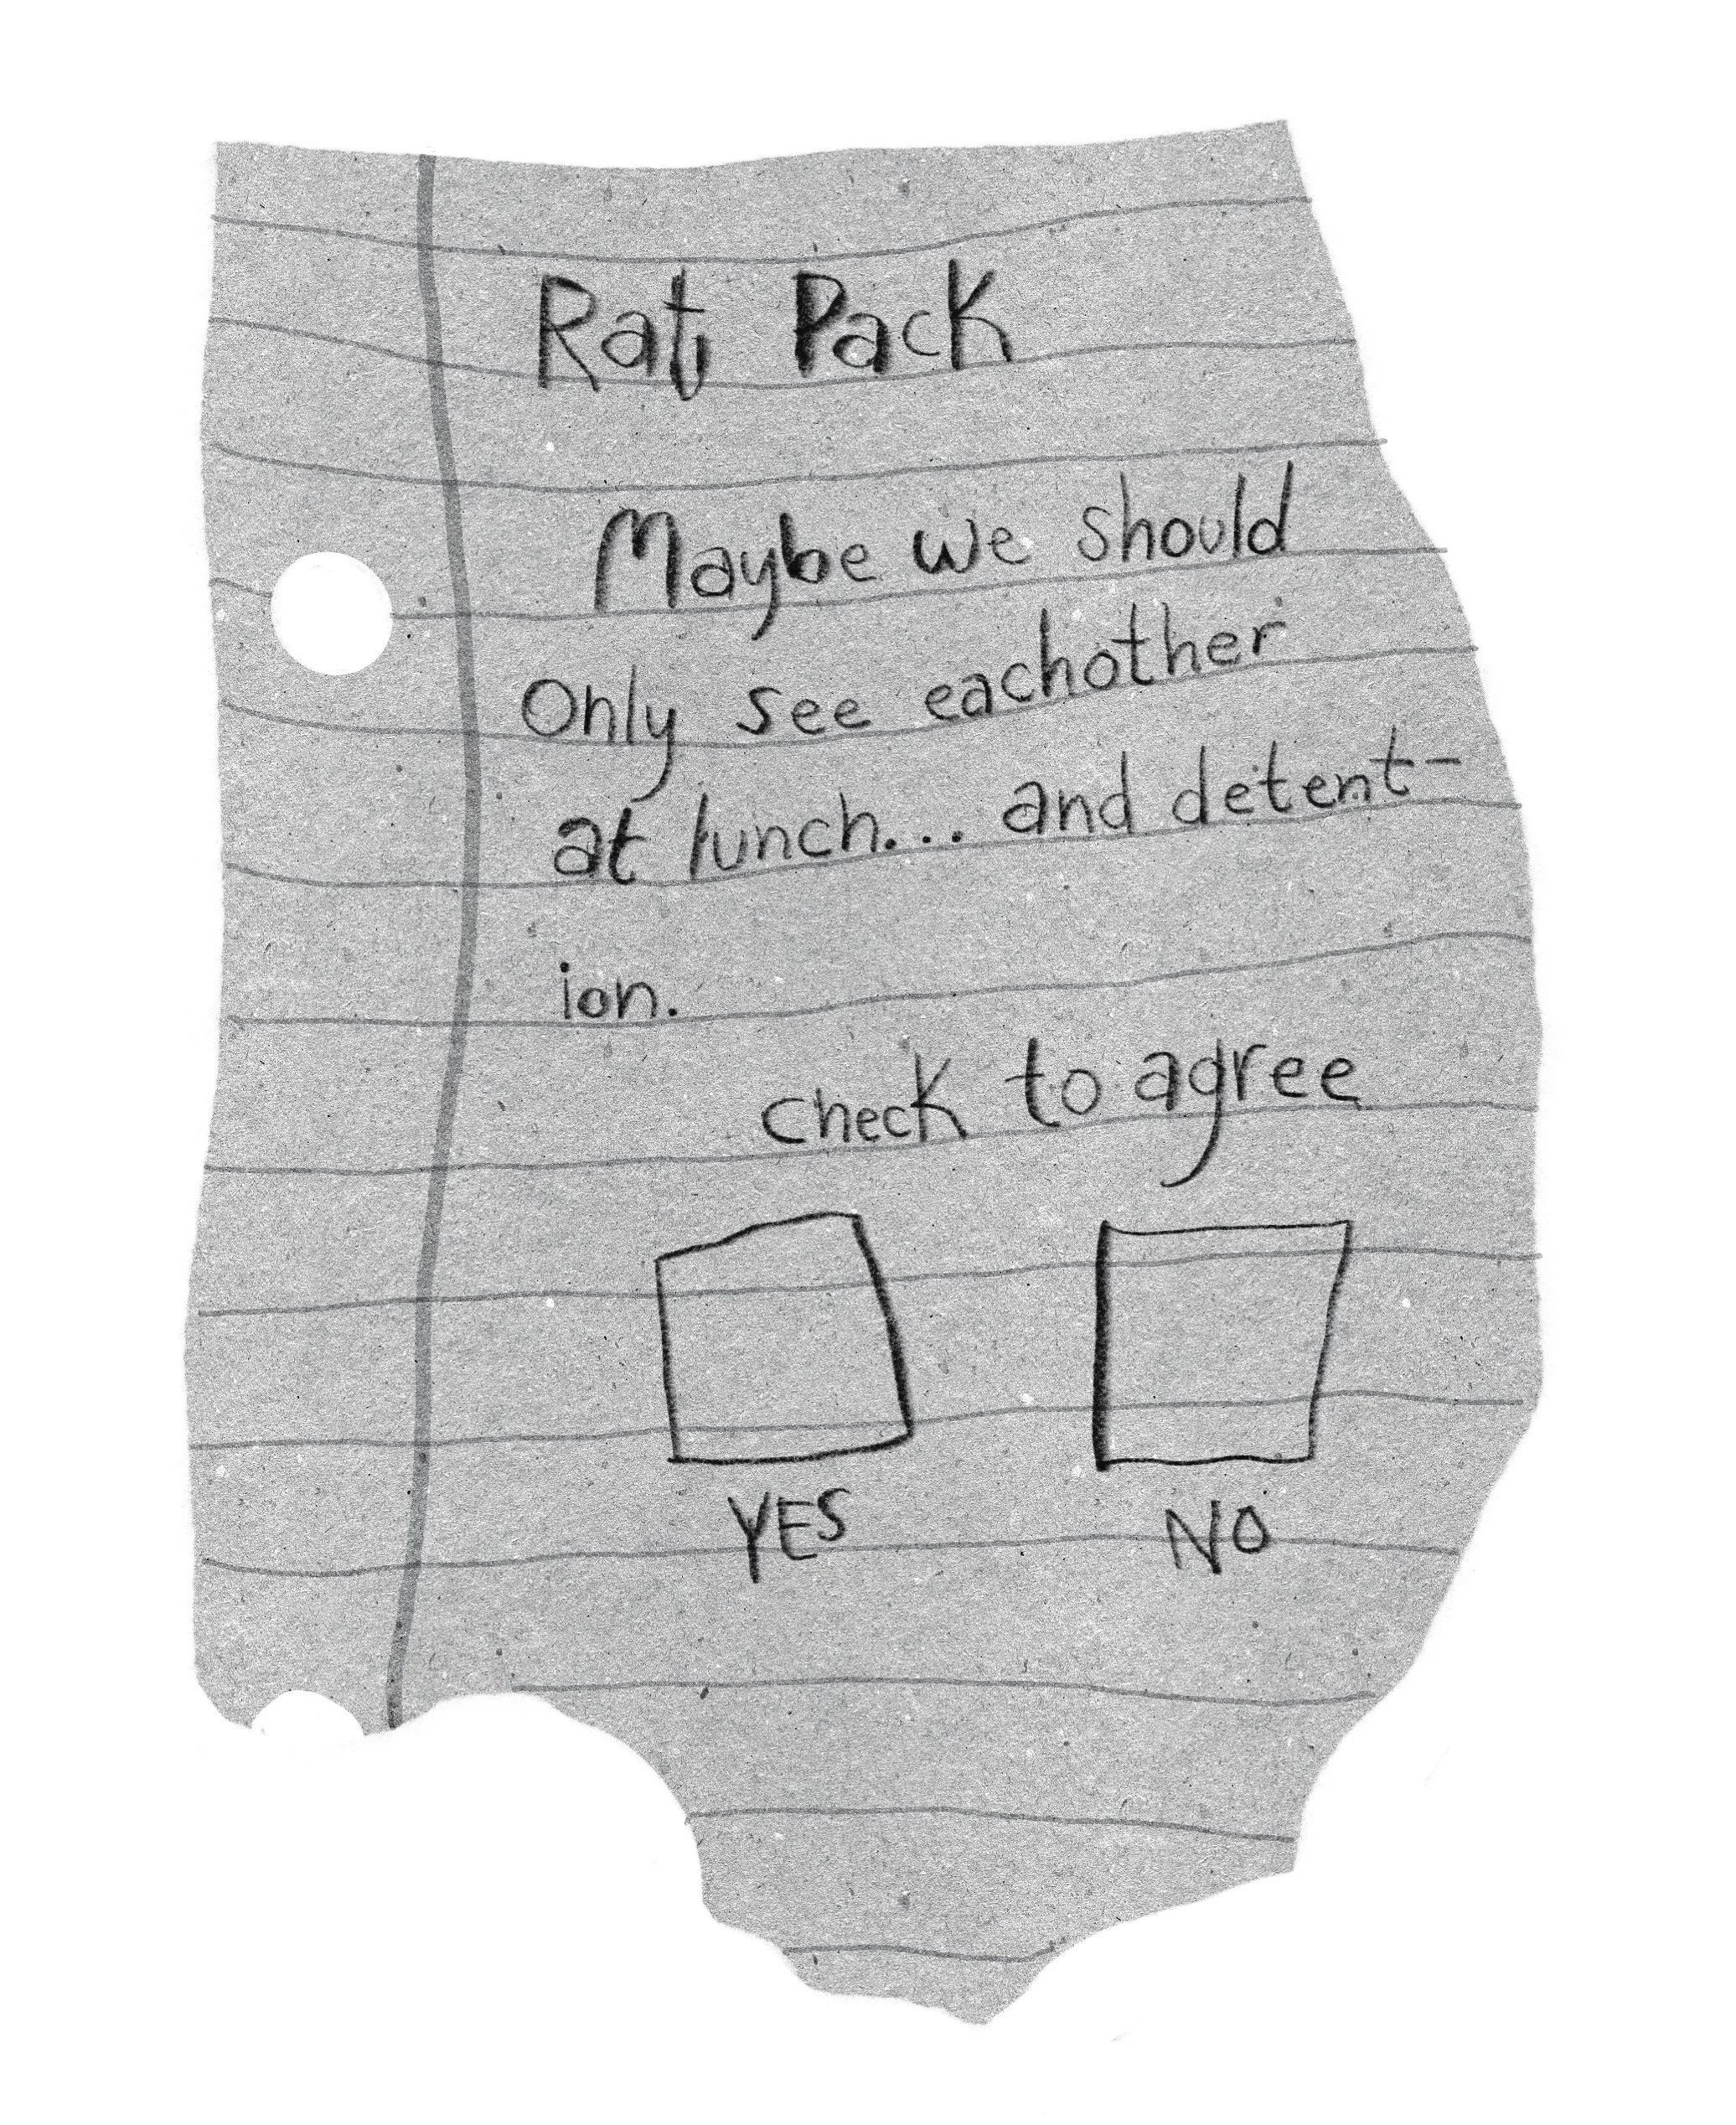 Rat Pack
Maybe we should
Only see eachother
at lunch... and detent-
ion.
check to agree
YES NO